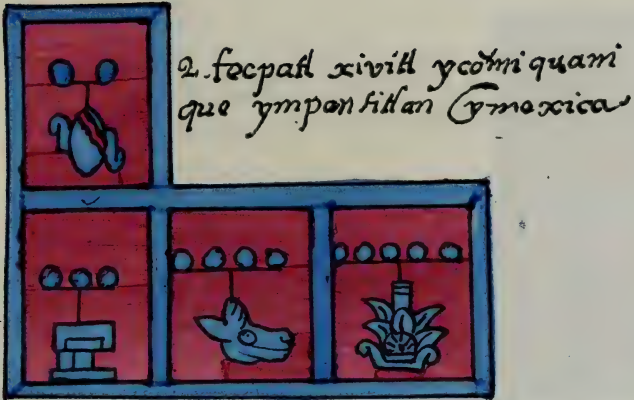 2. tecpatl xivitl ycõmiquani
que ympantitlan ymexica